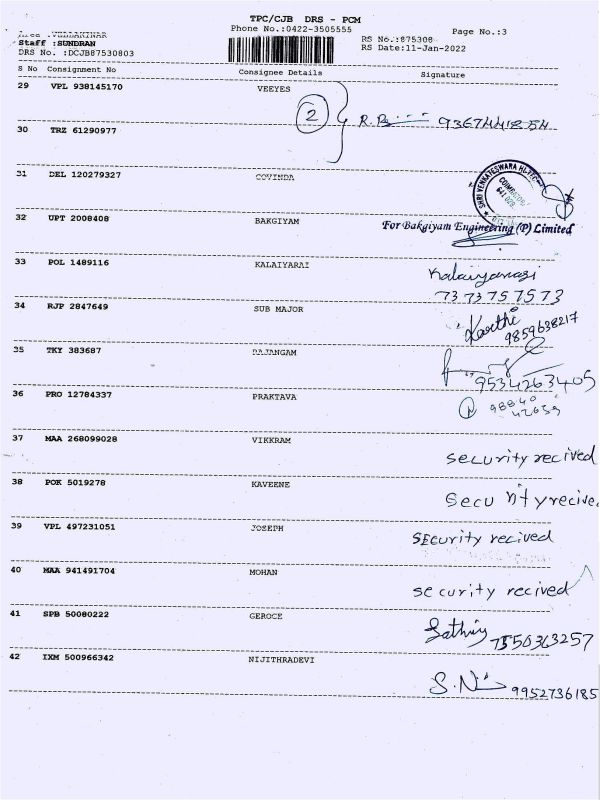 TPC/CJB DRS - PCM
Phone No.:0422-3505555
Page No.:3
Area :VELLAKINAR
RS No.:875308
Staff :SUNDRAN
RS Date:11-Jan-2022
DRS No. :DCJB87530803
S No Consignment No Consignee Details Signature
29 VPL 938145170 VEEYES
2 R.
30 TRZ 61290977
31 DEL 120279327 COVINDA
SHRI VENKATESWARA
COIMBATORE
32 UPT 2008408 BAKGIYAM
For Bakgiyam Engineering (P) Limited
33 POL 1489116 KALAIYARAI
Kalaiyarasi
7373757573
34 RJP 2847649 SUB MAJOR
Karthi
9859638217
35 TKY 383687 RAJANGAM
9534263405
36 PRO 12784337 PRAKTAVA
98840
42659
37 MAA 268099028 VIKKRAM
security recived
38 POK 5019278 KAVEENE
Security recived
39 VPL 497231051 JOSEPH
SECurity recived
40 MAA 941491704 MOHAN
security recived
41 SPB 50080222 GEROCE
Sathiy
7550363257
42 IXM 500966342 NIJITHRADEVI
S.Ni 9952736185